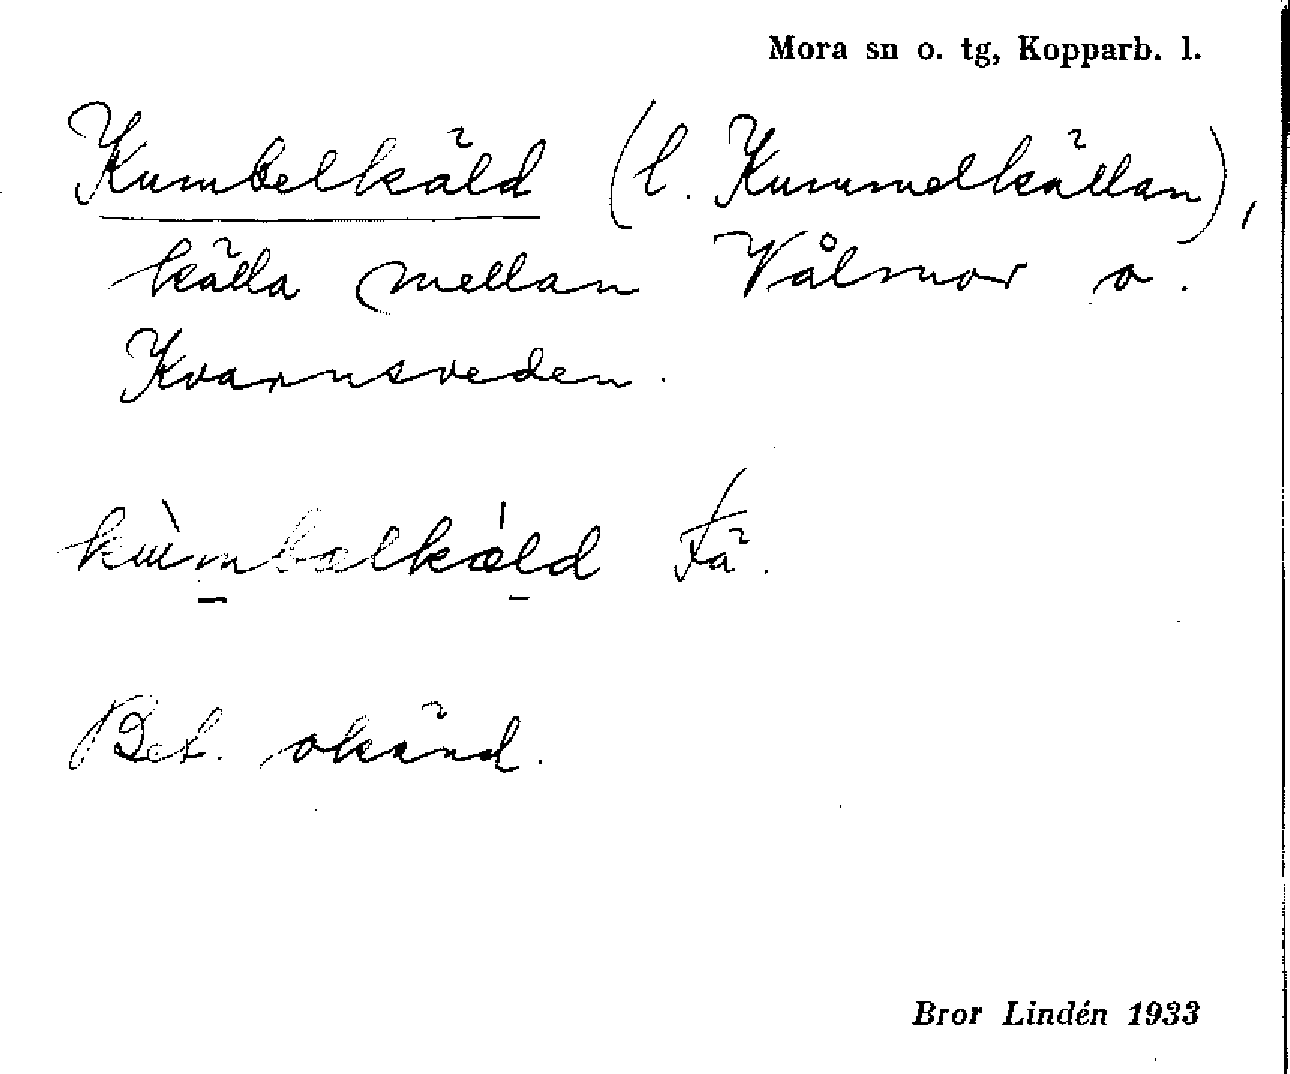 Mora sn o. tg, Kopparb. l.
Kumbelkäld (l. Kummelkällan),
källa mellan Vålmor o.
Kvarnsveden.
kùmbælkæ̍ld Fä.
Bet. okänd.
Bror Lindén 1933